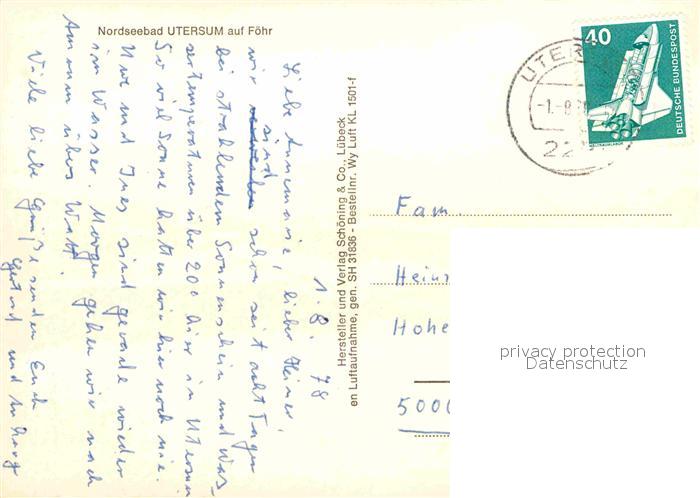 Nordseebad UTERSUM auf Föhr
1. 8. 78
Liebe Annemarie, lieber Heiner,
wir sind schon seit acht Tagen
bei strahlendem Sonnenschein und Was-
sertemperaturen über 20° hier in Utersum
So viel Sonne hatten wir hier noch nie.
Uwe und Ines sind gerade wieder
im Wasser. Morgen gehen wir nach
Amrum übers Watt.
Viele liebe Grüße senden Euch
Gertrud und
Hersteller und Verlag Schöning & Co., Lübeck
en Luftaufnahme, gen. SH 31836 - Bestellnr. Wy Luft KL 1501-f
UTER
-1.-8.
22
40
DEUTSCHE BUNDESPOST
WELTRAUMLABOR
Fam.
Hein
Hohe
5000
privacy protection
Datenschutz